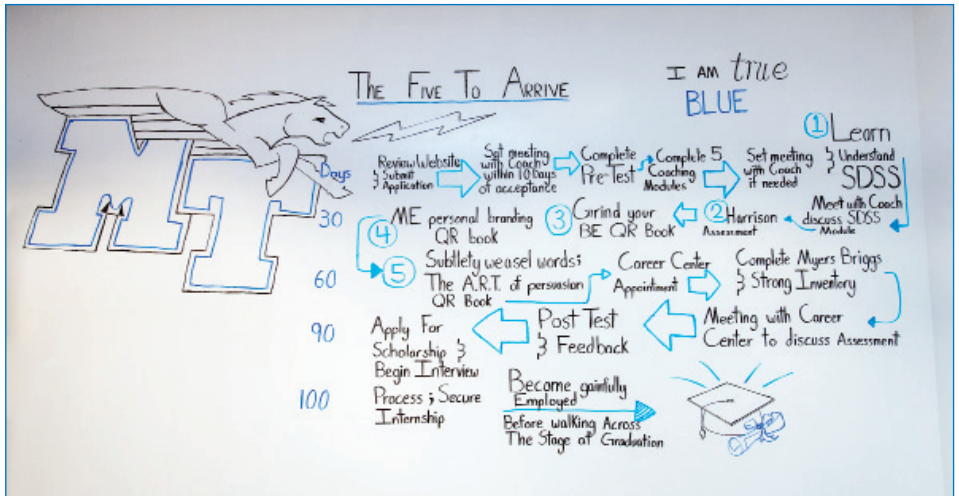 MT
THE FIVE TO ARRIVE
I AM true
BLUE
Days
Review Website
& Submit
Application
Set meeting
with Coach
within 10 Days
of acceptance
Complete
Pre-Test
Complete 5
Coaching
Modules
Set meeting
with Coach
if needed
① Learn
& Understand
SDSS
Meet with Coach
discuss SDSS
Module
② Harrison
Assessment
③ Grind your
BE QR Book
30
④ ME personal branding
QR book
60
⑤ Subtlety weasel words;
The A.R.T. of persuasion
QR Book
Career Center
Appointment
Complete Myers Briggs
& Strong Inventory
Meeting with Career
Center to discuss Assessment
Post Test
& Feedback
90
Apply For
Scholarship &
Begin Interview
100
Process ; Secure
Internship
Become gainfully
Employed
Before walking Across
The Stage at Graduation